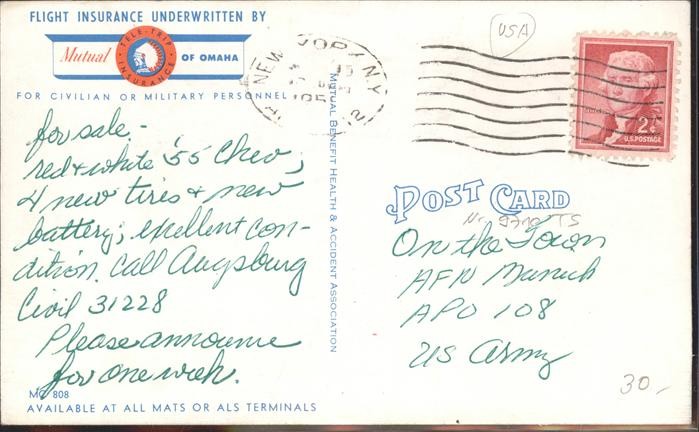 FLIGHT INSURANCE UNDERWRITTEN BY
Mutual
TELE-TRIP
INSURANCE
OF OMAHA
FOR CIVILIAN OR MILITARY PERSONNEL
NEW YORK N.Y.
USA
2¢
U.S. POSTAGE
for sale -
red & white '55 Chev;
4 new tires & new
battery; exellent con-
dition. Call Augsburg
Civil 31228
Please announce
for one week.
MC 808
AVAILABLE AT ALL MATS OR ALS TERMINALS
MUTUAL BENEFIT HEALTH & ACCIDENT ASSOCIATION
POST CARD
On the Town
AFN Munich
APO 108
US Army
30,-